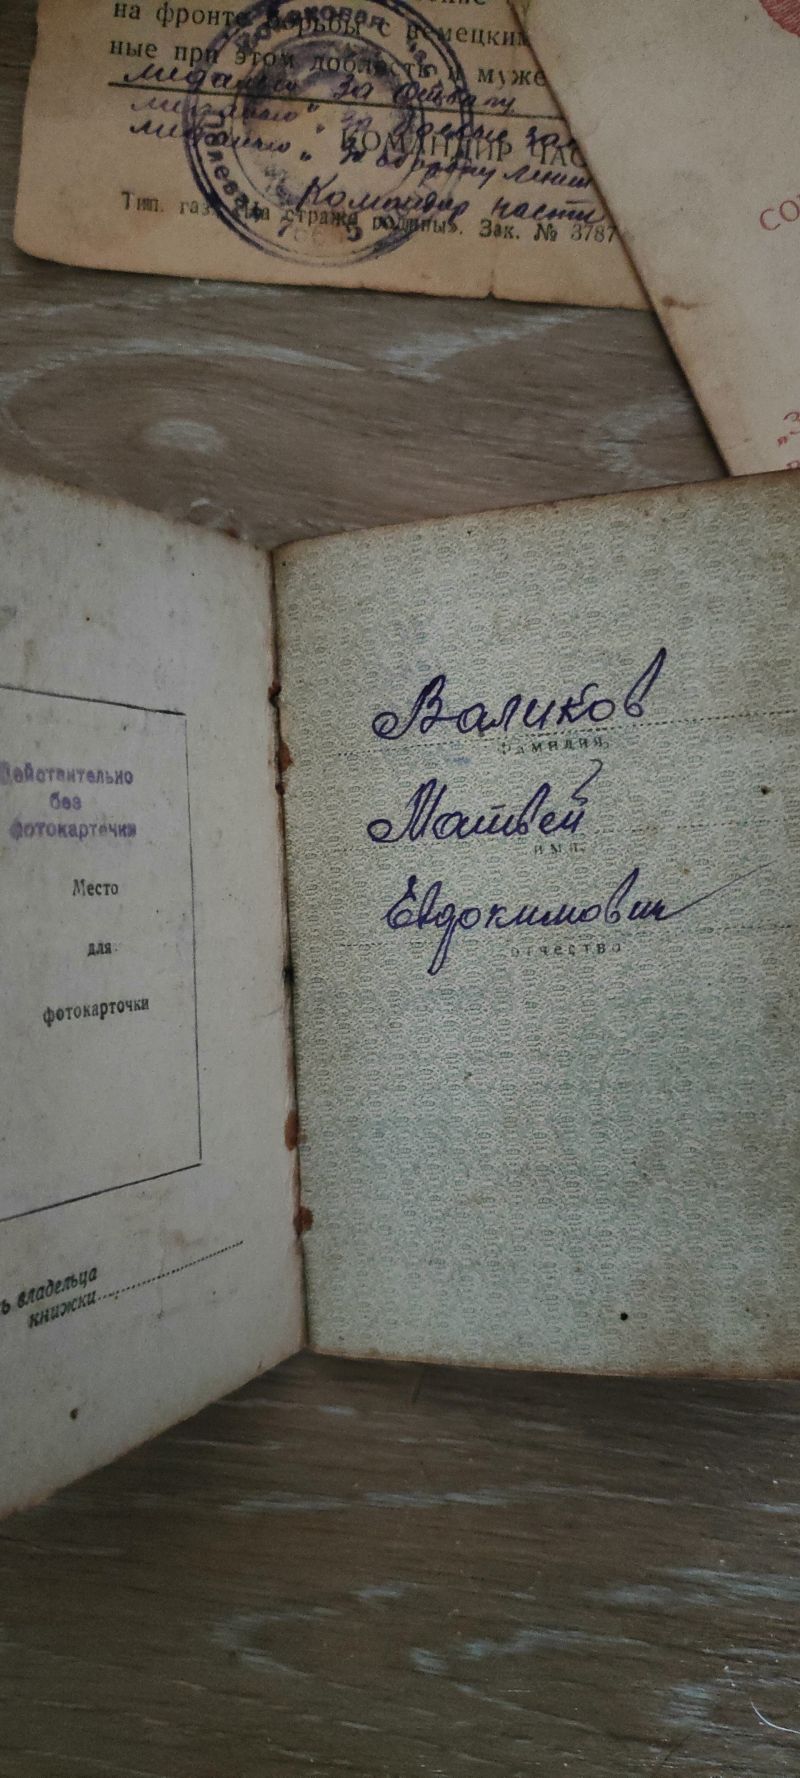 на фронте борьбы с немецким
ные при этом доблесть и муже
медалью "За отвагу
медалью " За боевые
медалью " За оборону Ленин
КОМАНДИР ЧАС
Командир части
Тип. газ. «На страже родины». Зак. № 3787
Полевая
СО
Действительно
без
фотокарточки
Место
для
фотокарточки
ь владельца
книжки
Валиков
фамилия
Матвей
имя
Евдокимович
отчество